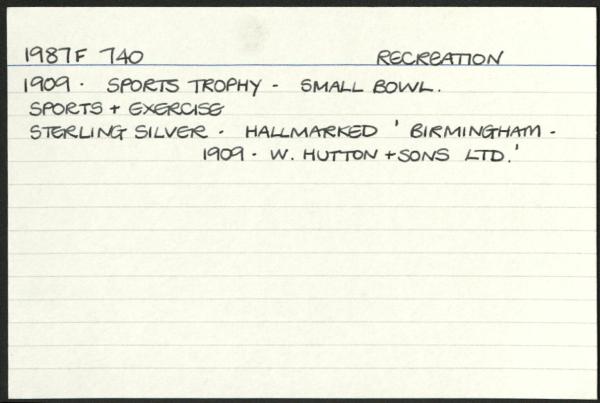 1987F 740 RECREATION
1909. SPORTS TROPHY - SMALL BOWL.
SPORTS + EXERCISE
STERLING SILVER. HALLMARKED ' BIRMINGHAM -
1909. W. HUTTON + SONS LTD.'